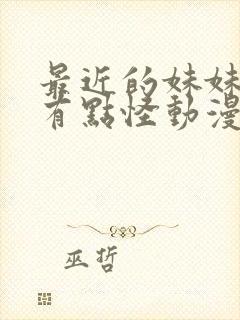 最近的妹妹
有點怪動漫
巫哲